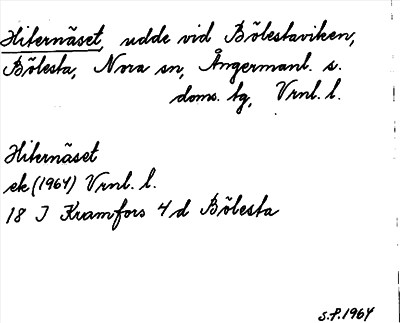 Hiternäset, udde vid Bölestaviken,
Bölesta, Nora sn, Ångermanl. s.
doms. tg, Vrnl. l.
Hiternäset
ek (1964) Vrnl. l.
18 J Kramfors 4 d Bölesta
S.P. 1964